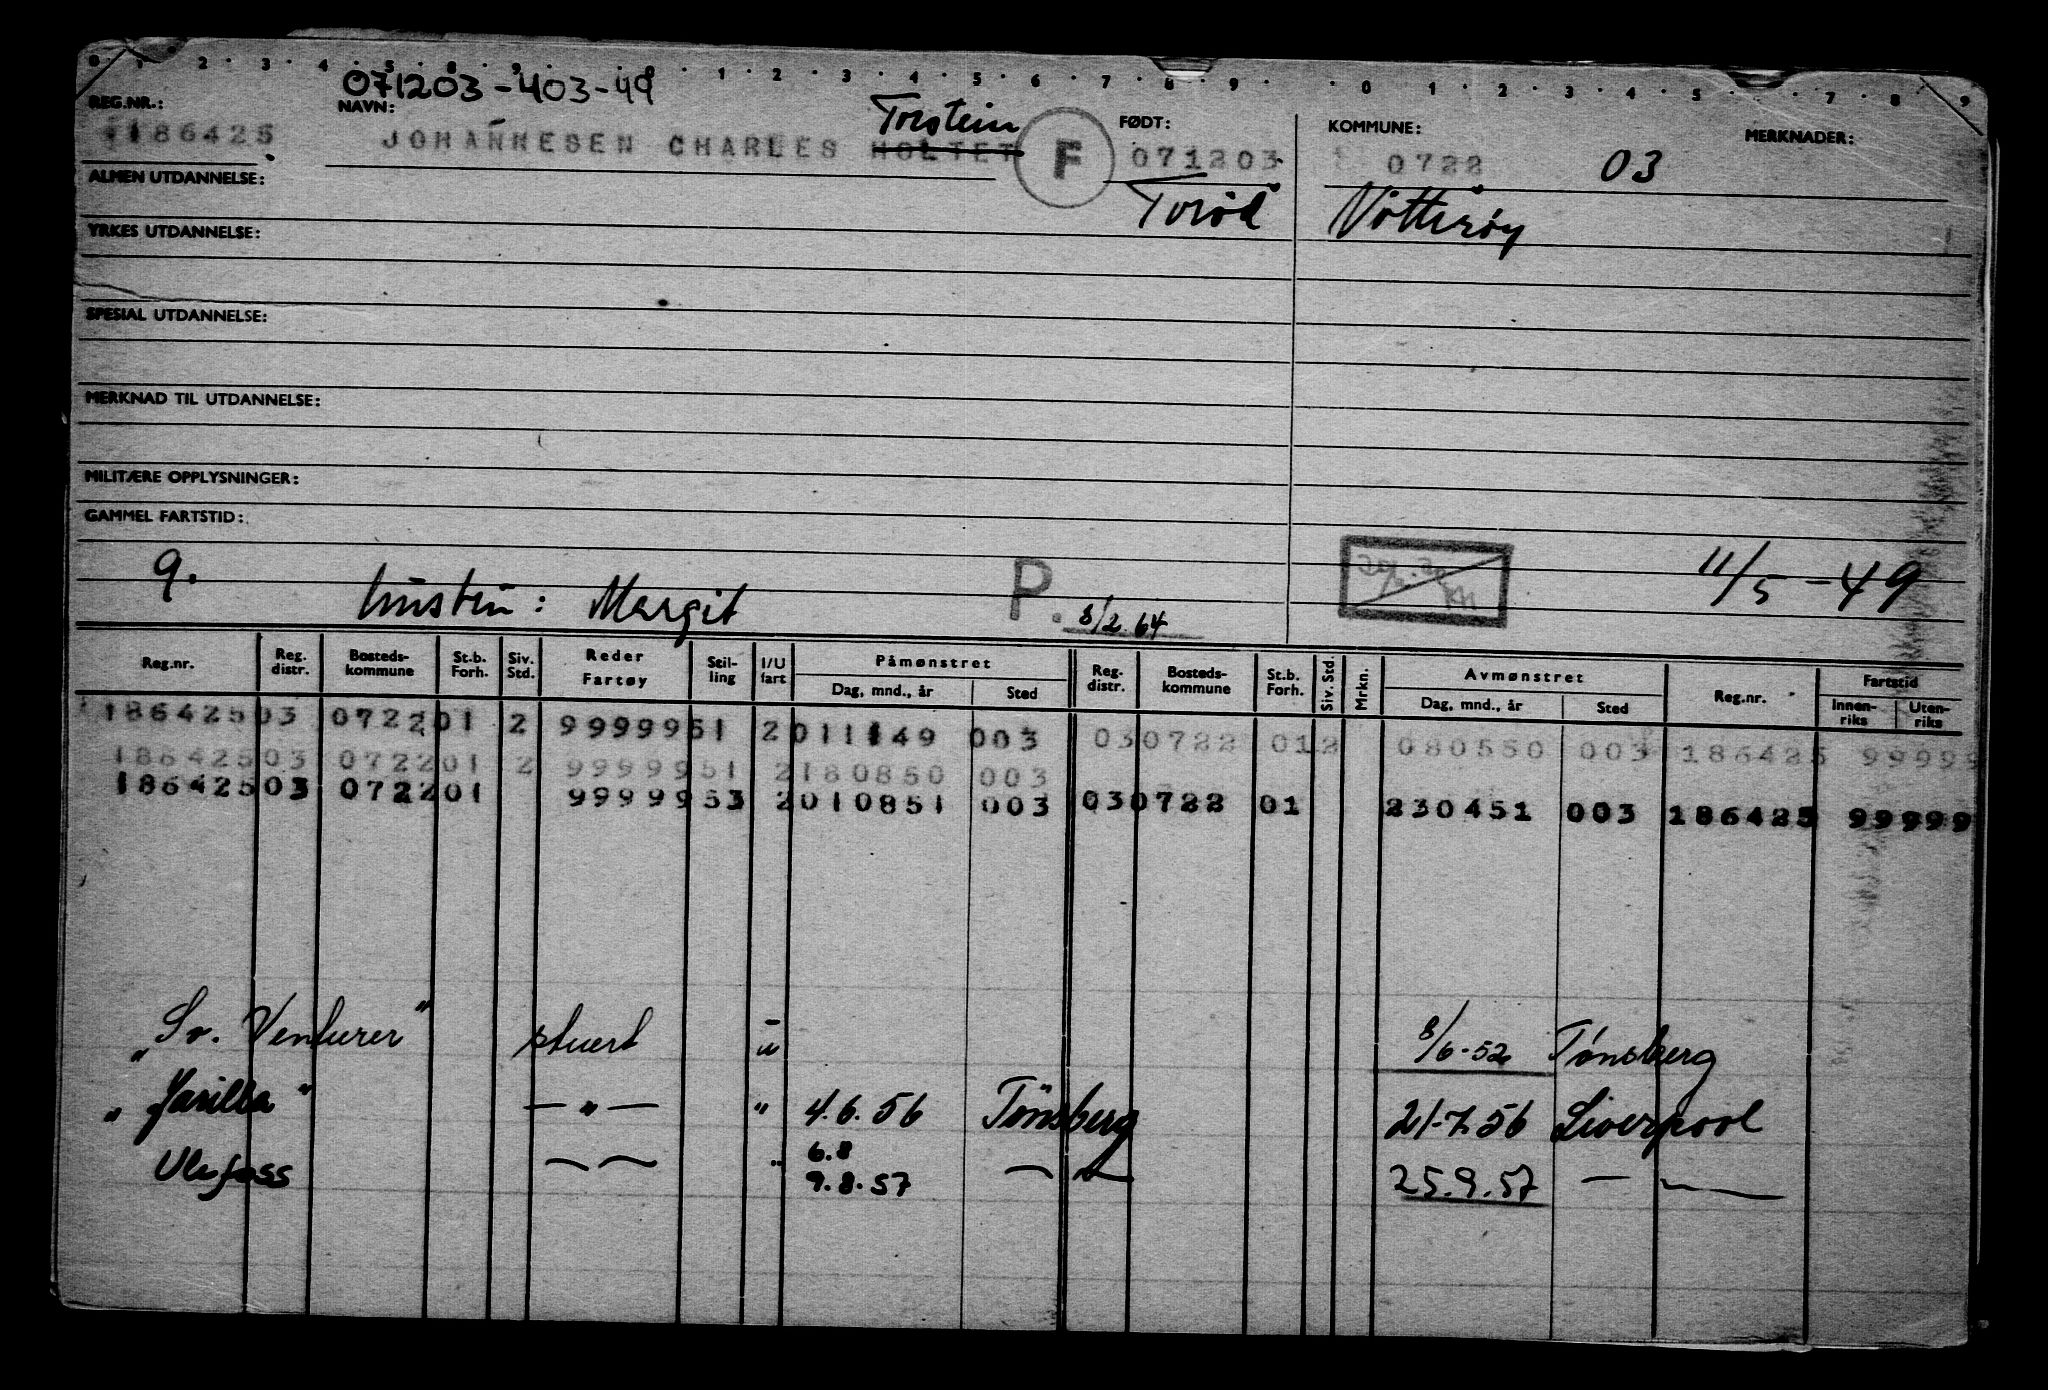 0 · 1 · 2 · 3 · 4 · 5 · 8 · 9 · 0 · 1 · 2 · 3 · 4 · 5 · 6 · 7 · 8 · 9 · 0 · 1 · 2 · 3 · 4 · 5 · 7 · 8 · 9
071203-403-49
REG.NR.: NAVN: Torstein FØDT: KOMMUNE: MERKNADER:
186425 JOHANNESEN CHARLES HOLTET F 071203 0722 03
ALMEN UTDANNELSE: Torød Nøtterøy
YRKES UTDANNELSE:
SPESIAL UTDANNELSE:
MERKNAD TIL UTDANNELSE:
MILITÆRE OPPLYSNINGER:
GAMMEL FARTSTID:
g. hustru: Margit P. 8/2 64 11/5-49
Reg.nr. Reg. distr. Bosteds-kommune St.b. Forh. Siv. Std. Reder Fartøy Stil-ling I/U fart Påmønstret Dag, mnd., år Sted Reg. distr. Bosteds-kommune St.b. Forh. Siv. Std. Mrkn. Avmønstret Dag, mnd., år Sted Reg.nr. Fartstid Innen-riks Uten-riks
186425 03 0722 01 2 99999 51 2 011149 003 03 0722 01 2 080550 003 186425 99999
186425 03 0722 01 2 99999 51 2 180850 003
186425 03 0722 01 99999 53 2 010851 003 03 0722 01 230451 003 186425 99999
"Sv. Venturer" stuert u 8/6-52 Tønsberg
"Jarilla" — " — " 4.6.56 Tönsberg 21-7.56 Liverpool
6.8
Ulefoss — — " 9.8.57 — — 25.9.57 — —